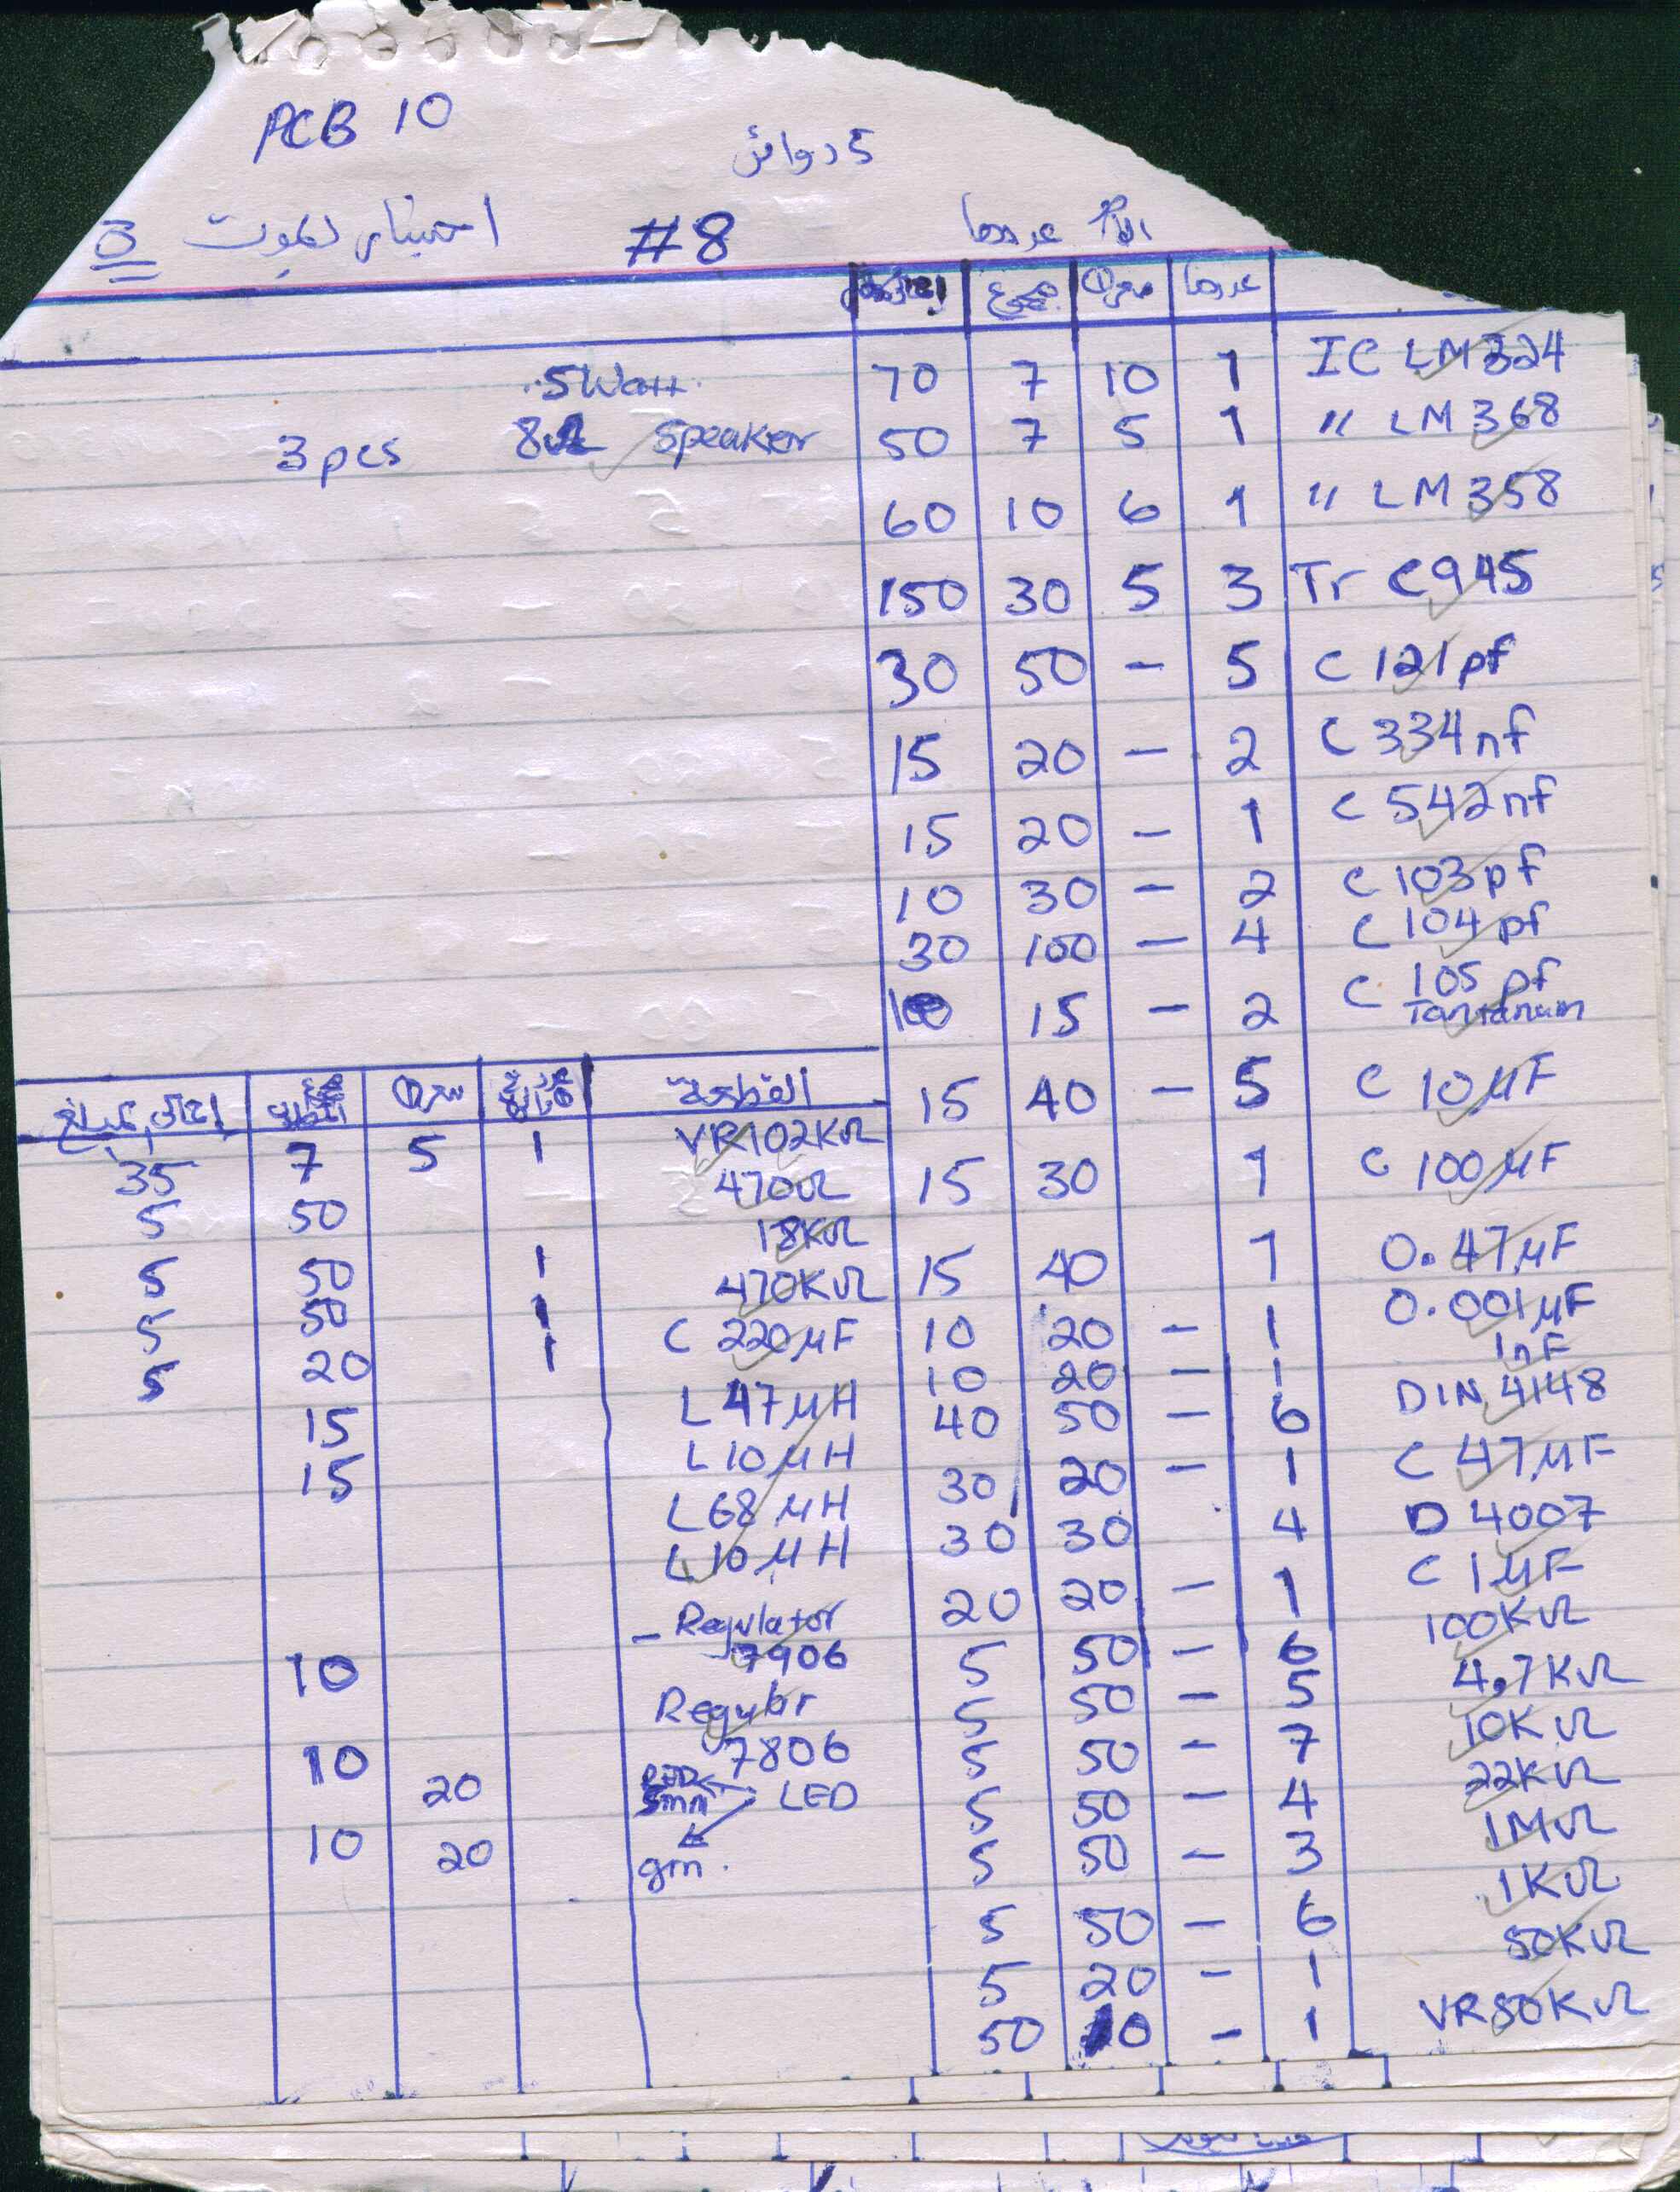 PCB 10
5 دوائر
#8
3
عددها
عددها سعر① مجموع
IC LM324 1 10 7 70
5Watt
" LM 368 1 5 7 50
3pcs 8Ω Speaker
" LM 358 1 6 10 60
Tr C945 3 5 30 150
C 121pf 5 - 50 30
C 334nf 2 - 20 15
C 542nf 1 - 20 15
C 103pf 2 - 30 10
C 104pf 4 - 100 30
C 105 pf 2 - 15
C 10μF 5 - 40 15
C 100μF 1 30 15
0.47μF 1 40 15
0.001μF 1 - 20 10
1nF 1 - 20 10
DIN 4148 6 - 50 40
C 47μF 1 - 20 30
D 4007 4 30 30
C 1μF 1 - 20 20
100KΩ 6 - 50 5
4.7KΩ 5 - 50 5
10KΩ 7 - 50 5
22KΩ 4 - 50 5
1MΩ 3 - 50 5
1KΩ 6 - 50 5
50KΩ 1 - 20 5
VR50KΩ 1 - 10 50
القطعة سعر①
VR102KΩ 1 5 7 35
470Ω 50 5
18KΩ 1 50 5
470KΩ 1 50 5
C 220μF 1 20 5
L 47μH 15
L10μH 15
L68μH
L10μH
- Regulator
7906 10
Regular
7806 10
RED
5mm LED 20
grn. 20 10